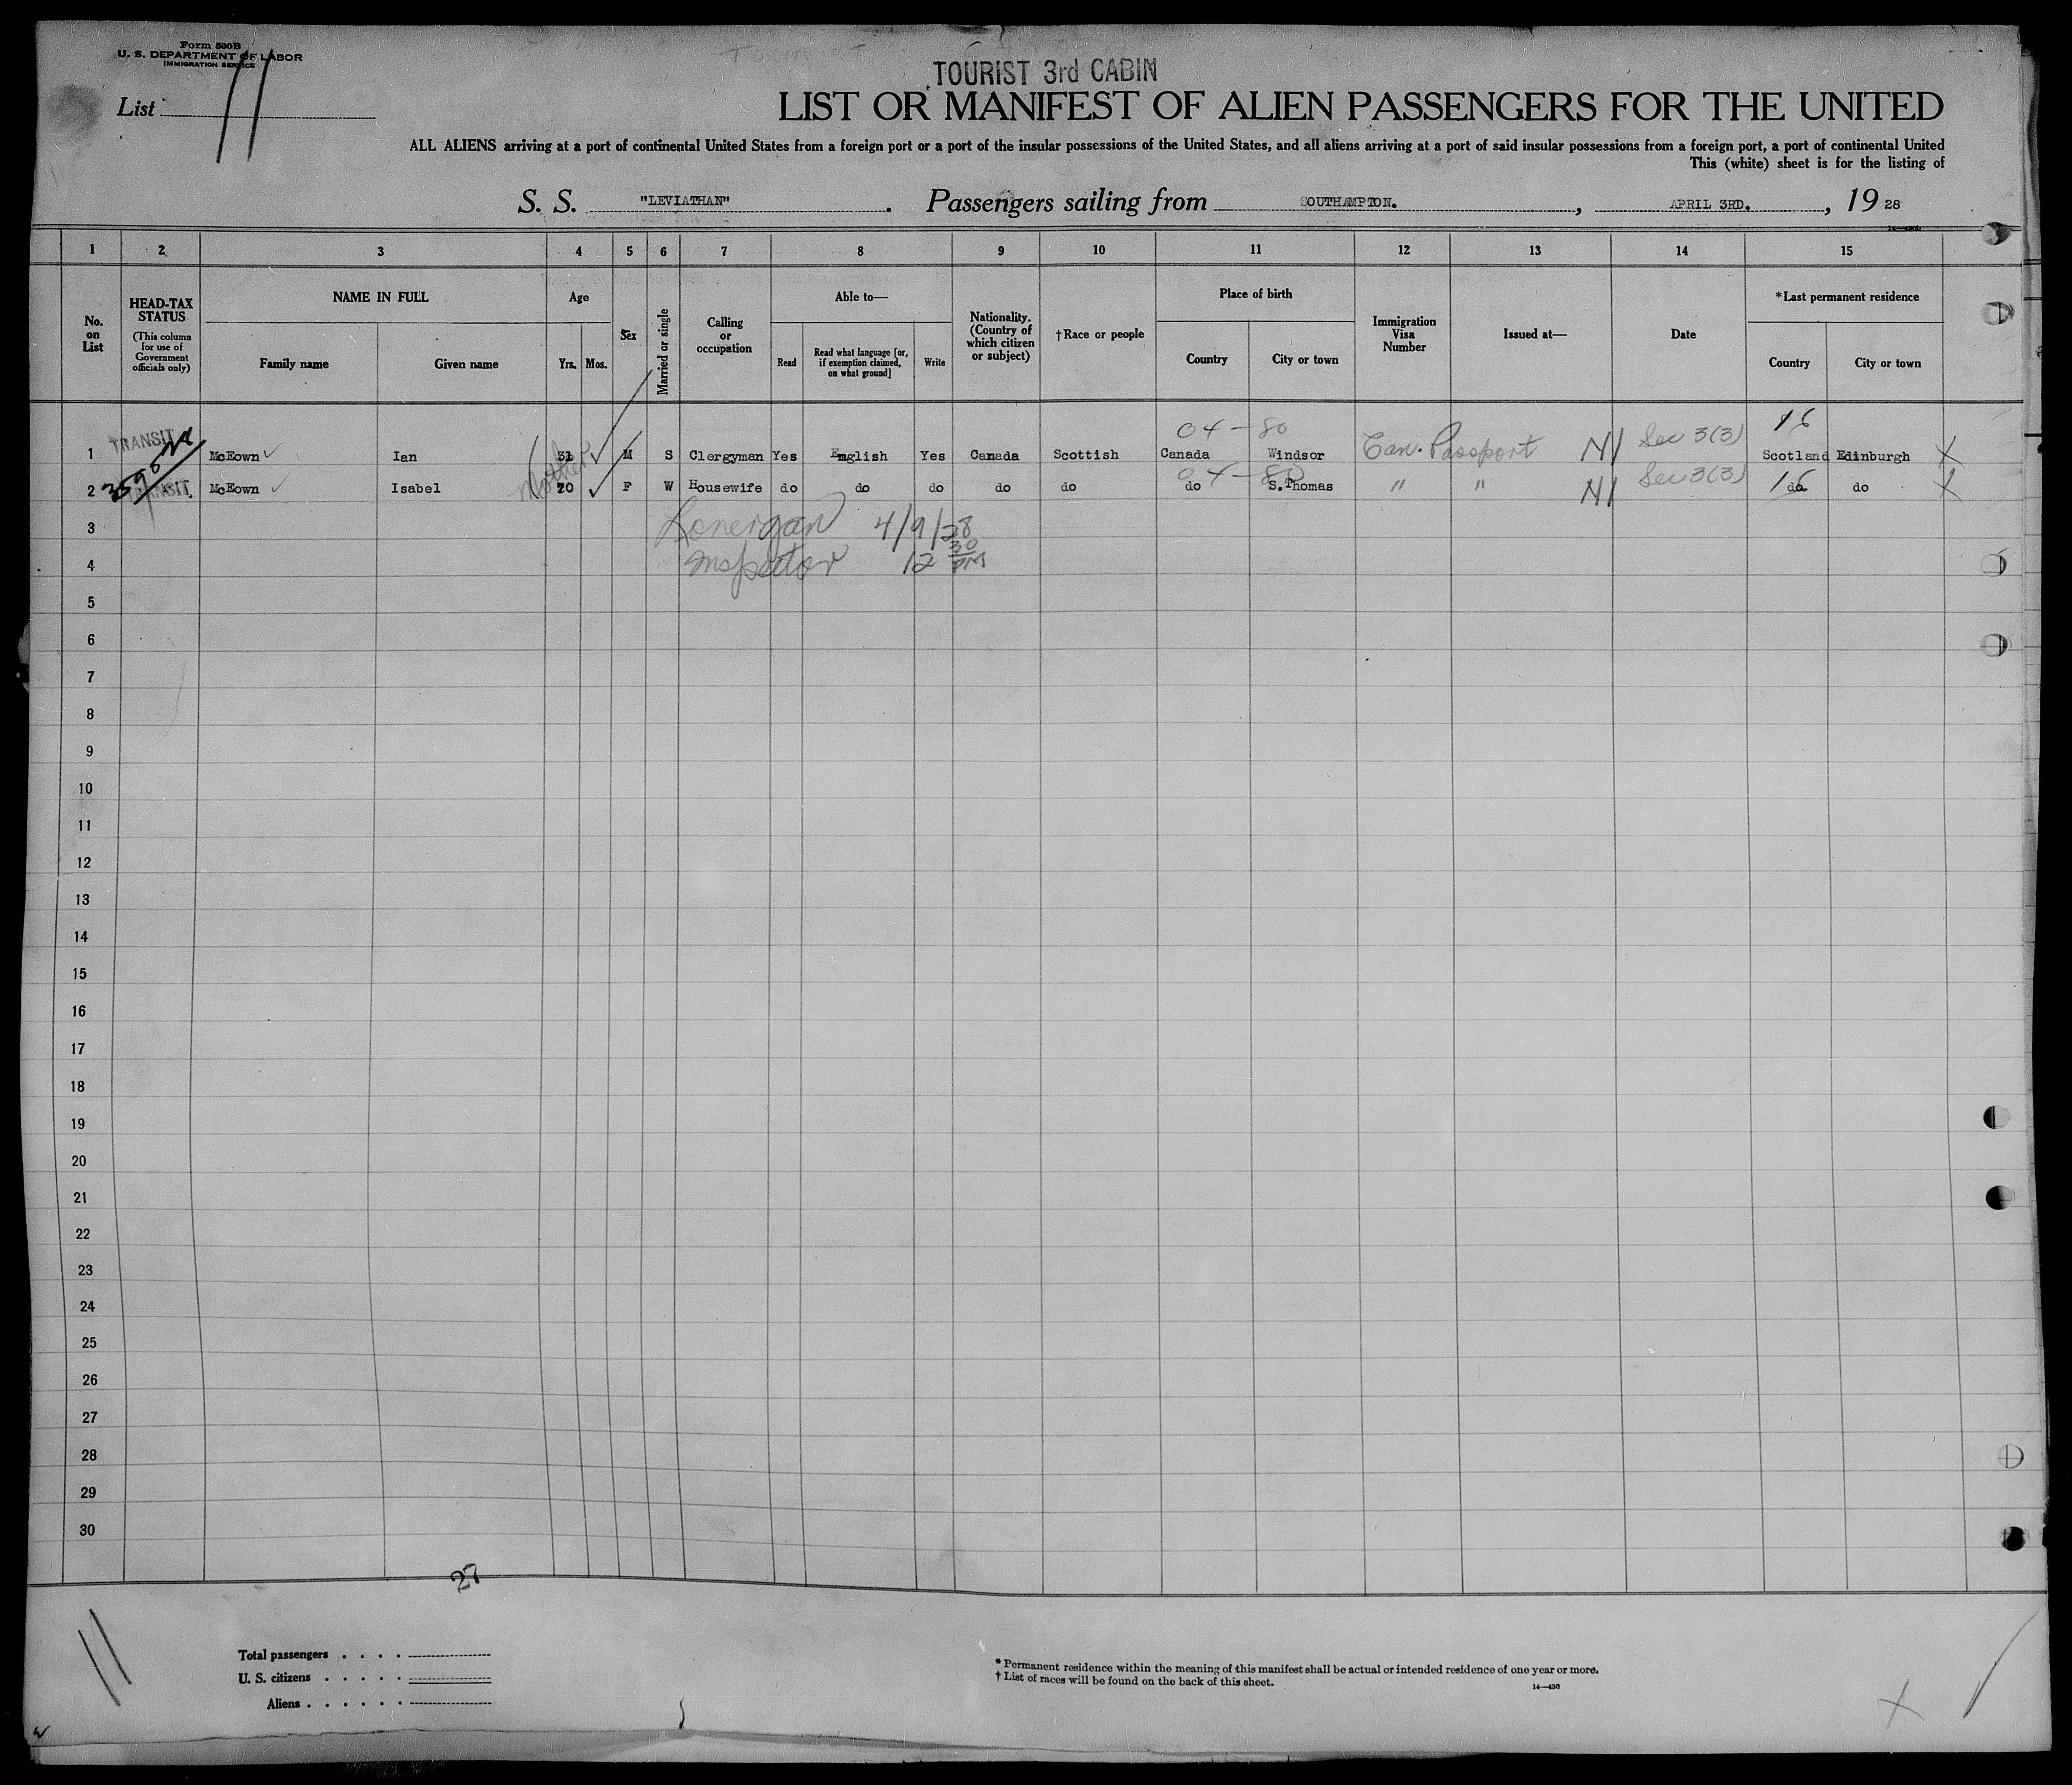 Form 500B
U. S. DEPARTMENT OF LABOR
IMMIGRATION SERVICE
List 11
TOURIST 3rd CABIN
LIST OR MANIFEST OF ALIEN PASSENGERS FOR THE UNITED
ALL ALIENS arriving at a port of continental United States from a foreign port or a port of the insular possessions of the United States, and all aliens arriving at a port of said insular possessions from a foreign port, a port of continental United
This (white) sheet is for the listing of
S. S. "LEVIATHAN". Passengers sailing from SOUTHAMPTON., APRIL 3RD., 19 28
1 2 3 4 5 6 7 8 9 10 11 12 13 14 15
No. on List
HEAD-TAX STATUS
(This column for use of Government officials only)
NAME IN FULL
Family name Given name
Age
Yrs. Mos.
Sex
Married or single
Calling or occupation
Able to—
Read Read what language [or, if exemption claimed, on what ground] Write
Nationality. (Country of which citizen or subject)
†Race or people
Place of birth
Country City or town
Immigration Visa Number
Issued at—
Date
*Last permanent residence
Country City or town
04-80 16
1 TRANSIT McEown Ian 31 M S Clergyman Yes English Yes Canada Scottish Canada Windsor Can. Passport Sec 3(3) Scotland Edinburgh X
Mother
04-80 16
2 TRANSIT McEown Isabel 70 F W Housewife do do do do do do S.Thomas " " Sec 3(3) do do X
3 Lonergan 4/9/28
4 Inspector 12 30 PM
5
6
7
8
9
10
11
12
13
14
15
16
17
18
19
20
21
22
23
24
25
26
27
28
29
30
27
11
Total passengers . . . .
U. S. citizens . . . . .
Aliens . . . . . .
* Permanent residence within the meaning of this manifest shall be actual or intended residence of one year or more.
† List of races will be found on the back of this sheet.
14—430
X